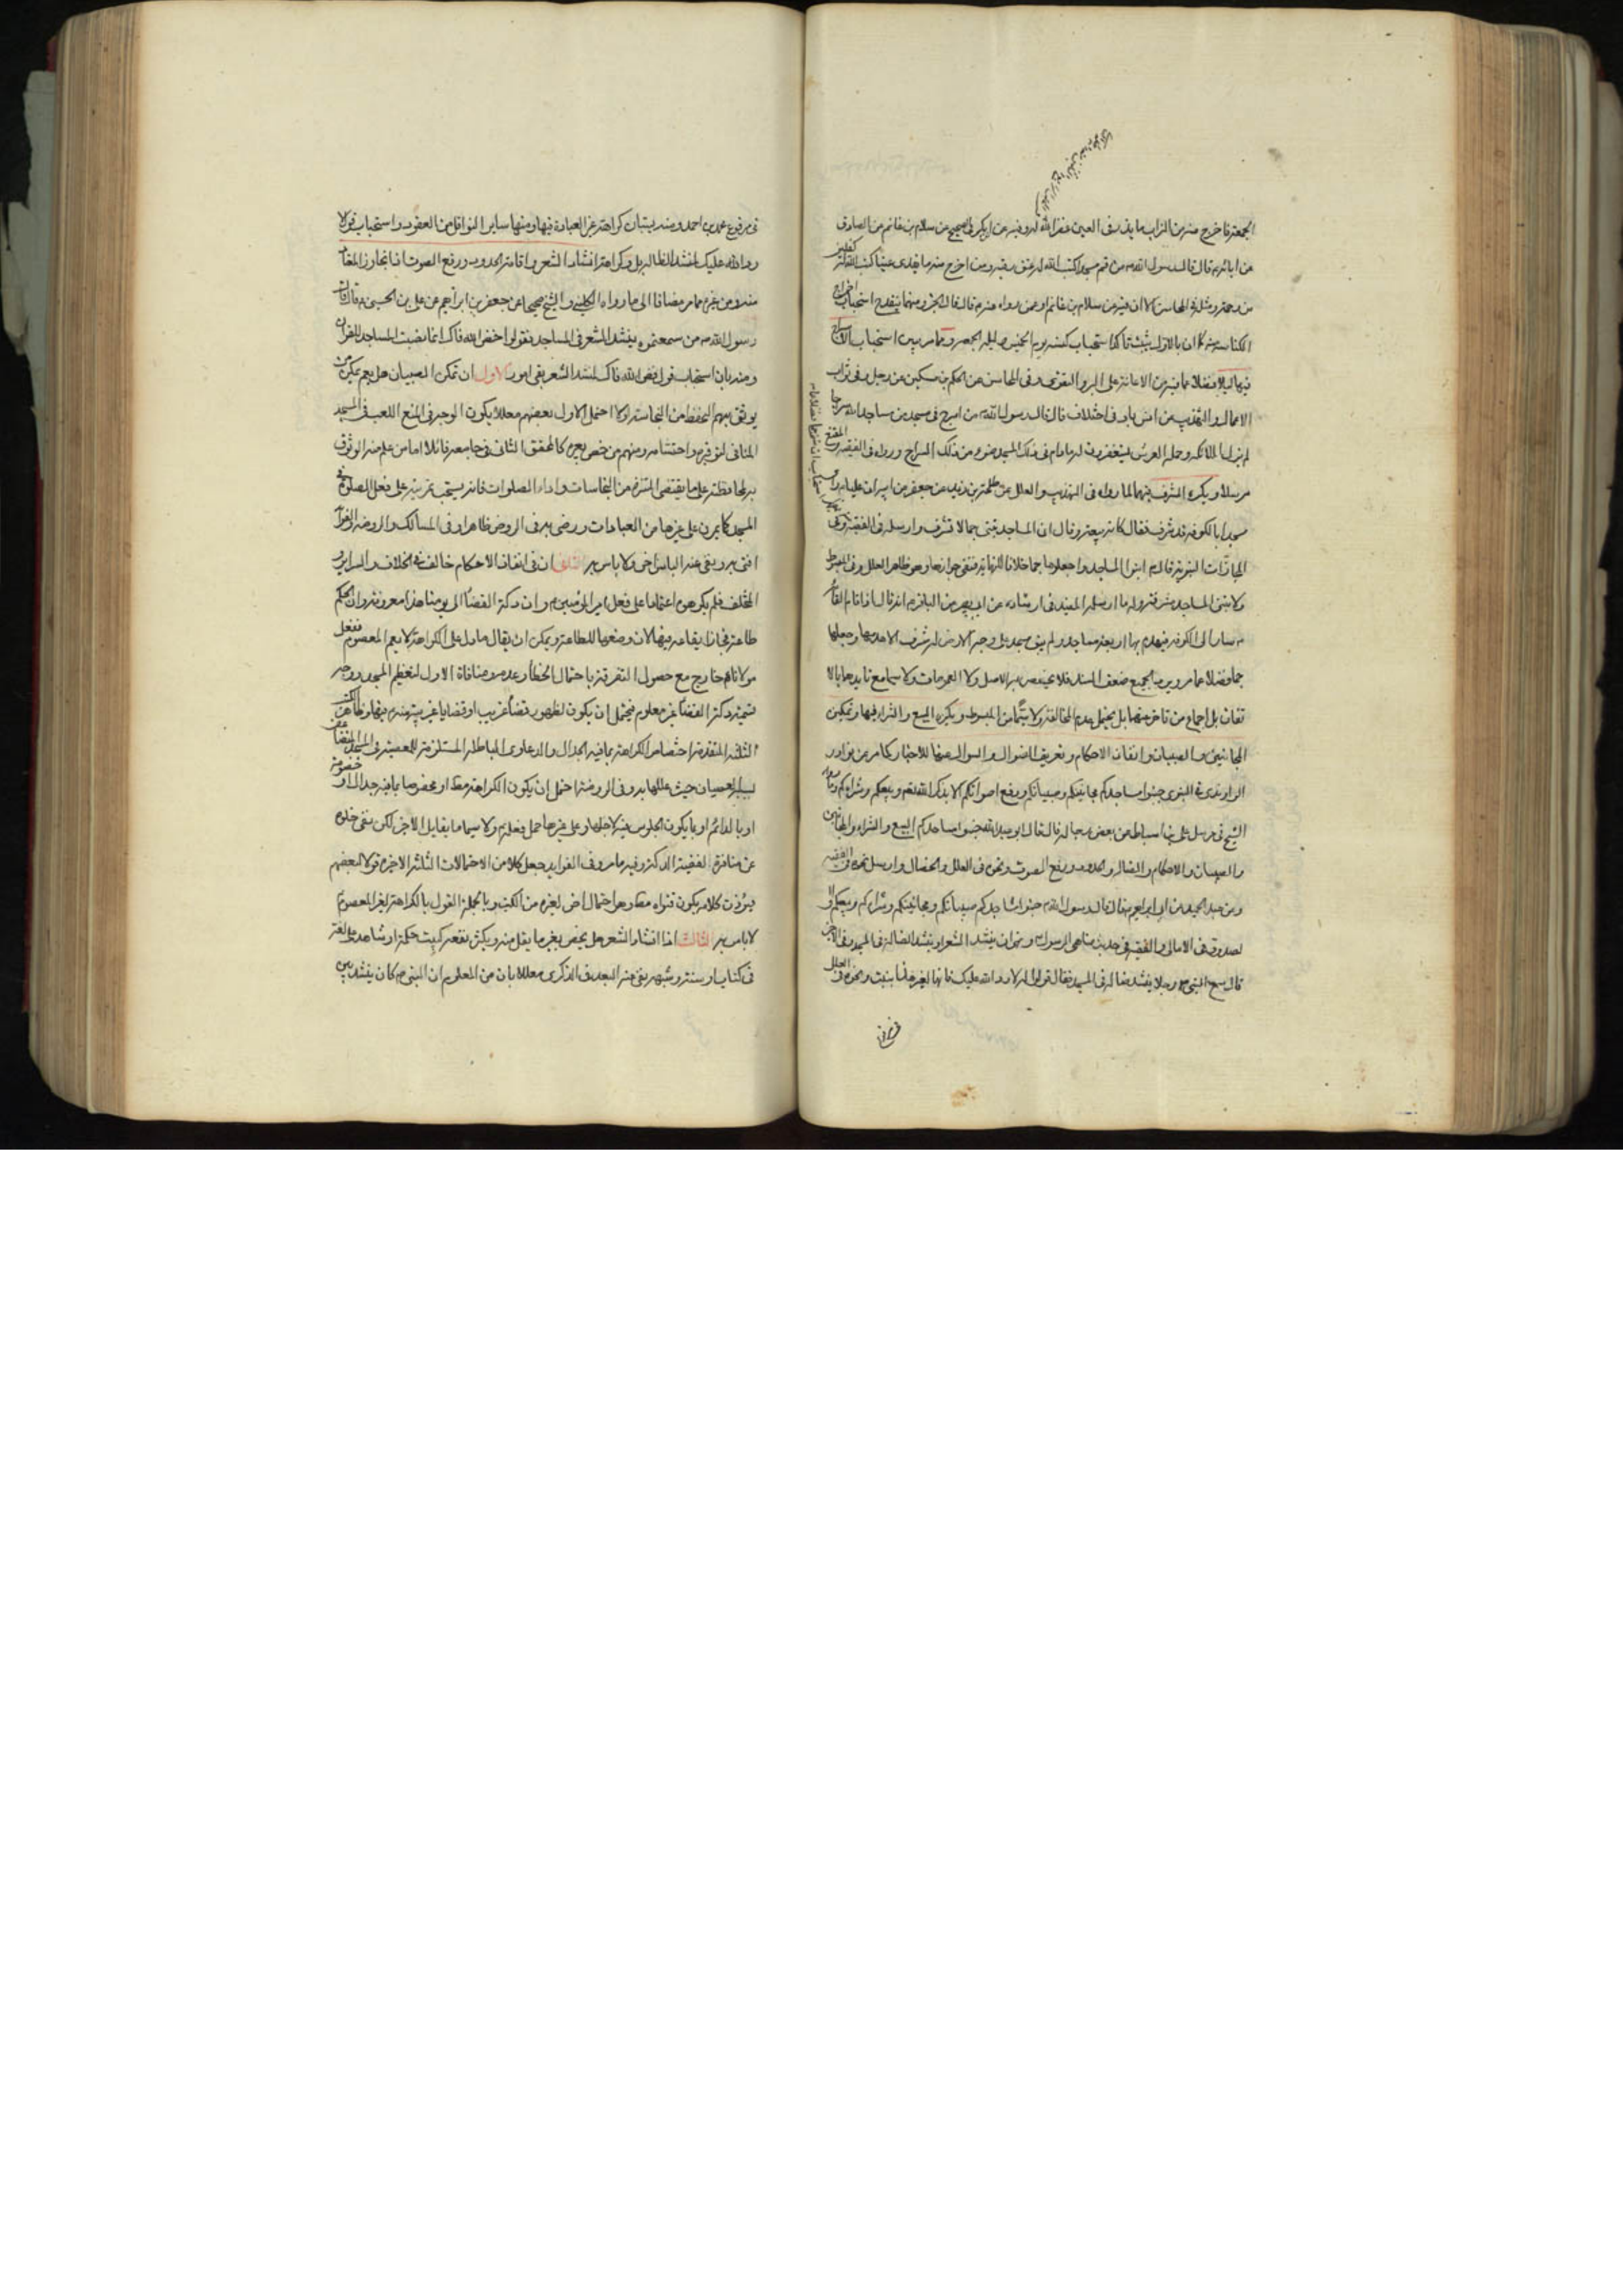 الجمعة فاخرج منه من التراب ما يذر في العين غفر الله له وفيه عن
عن ابائه قال قال رسول الله من قم مسجدا كتب الله له عتق رقبة ومن اخرج منه ما يقذي عينا كتب الله
من رحمته ومثله في المحاسن الا ان فيه عن سلام بن غانم او عمن رواه عنه
استحباب كنسه يوم الخميس وليلة الجمعة ومما مر يبين استحباب الاسراج
فيها ليلا فضلا عما فيه من الاعانة على البر والتقوى وفي المحاسن عن الحكم بن مسكين عن رجل وفي ثواب
الاعمال والتهذيب عن انس باد في اختلاف قال قال رسول الله من اسرج في مسجد من مساجد الله سراجا
لم تزل الملائكة وحملة العرش يستغفرون له ما دام في ذلك المسجد ضوء من ذلك السراج ورواه في الفقيه
مرسلا ويكره الشرف فيها لما رواه في التهذيب والعلل عن طلحة بن زيد عن جعفر عن ابيه ان عليا راى
مسجدا بالكوفة قد شرف فقال كانه بيعة وقال ان المساجد تبنى جما لا تشرف وارسله في الفقيه وفي
المجازات النبوية قال ابنوا المساجد واجعلوها جما خلافا للنهاية فنفى جوازها وهو ظاهر العلل وفي المبسوط
ولا تبنى المساجد مشرفة وله ما ارسله المفيد في ارشاده عن ابي بصير عن الباقر انه قال اذا قام القائم
سار الى الكوفة فيهدم بها اربعة مساجد ولم يبق مسجد على وجه الارض له شرف الا هدمها وجعلها
جما فضلا عما مر ويرد الجميع ضعف السند فلا يخصص به الاصل ولا العمومات ولا سيما مع تايدها بالا
تفاق بل اجماع من تاخر عنهما بل يحتمل عدم المخالفة ولا سيما من المبسوط ويكره البيع والشراء فيها وتمكين
المجانين والصبيان وانفاذ الاحكام وتعريف الضوال والسوال عنها للاخبار كما مر عن نوادر
الراوندي في النبوي جنبوا مساجدكم مجانينكم وصبيانكم ورفع اصواتكم الا بذكر الله تعم وبيعكم وشراءكم
الشيخ في مرسل علي بن اسباط عن بعض رجاله قال قال ابو عبد الله جنبوا مساجدكم البيع والشراء والمجانين
والصبيان والاحكام والضالة والحدود ورفع الصوت ونحوه في العلل والخصال وارسل نحوه في الفقيه
وعن عبد الحميد عن ابي ابراهيم قال قال رسول الله جنبوا مساجدكم صبيانكم ومجانينكم وشراءكم وبيعكم
لصدوق في الامالي والفقيه في حديث مناهي الرسول ونهى ان ينشد الشعر او ينشد الضالة في المسجد وفي الاخير
قال سمع النبي رجلا ينشد ضالة في المسجد فقال قولوا له لا رد الله عليك فانها لغير هذا بنيت ونحوه في العلل
في مرفوع محمد بن احمد ومنه يتبان كراهة غير العبادة فيها ومنها ساير النوافل من العقود واستحباب قول لا
رد الله عليك لمنشد الضالة بل وكراهة انشاد الشعر واقامة الحدود ورفع الصوت اذا تجاوز المعتاد
مضافا الى ما رواه الكليني والشيخ صحيحا عن جعفر بن ابراهيم عن علي بن الحسين قال قال
رسول الله من سمعتموه ينشد الشعر في المساجد فقولوا فض الله فاك انما نصبت المساجد للقران
ومنه بان استحباب قول فض الله فاك لمنشد الشعر بقى امور الاول ان تمكن الصبيان هل يعم تمكين من
يوثق بهم التحفظ من النجاسة او لا احتمل الاول بعضهم معللا يكون الوجه في المنع اللعب في المسجد
المنافي لتوقيره واحتشامه ومنهم من خص بغيره كالمحقق الثاني في جامعه قائلا اما من علم منه الوثوق
به لمحافظته على ما يقتضي التنزه من النجاسات واداء الصلوات فانه يستحب تمرينه على فعل الصلوة في
المسجد كما يمرن على غيرها من العبادات ورضى به في الروض ظاهرا وفي المسالك والروضة
افتى به ونفى عنه الباس اخى ولا باس به الثاني ان في انفاذ الاحكام خالف في الخلاف والسراير و
المختلف فلم يكرهوه اعتمادا على فعل امير المؤمنين وان دكة القضاء الى يومنا هذا معروفة وان الحكم
طاعة فجاز ايقاعه فيها لان وضعها للطاعة ويمكن ان يقال ما دل على الكراهة لا يعم المعصوم ففعل
مولانا خارج مع حصول التفرقة باحتمال الخطأ وعدمه ومنافاة الاول لتعظيم المسجد ووجه
تسمية دكة القضاء غير معلوم فيحتمل ان يكون لظهور قضاء غريب او قضايا غريبة منه فيها
الثلثة المتقدمة اختصاص الكراهة بما فيه الجدال والدعاوى الباطلة المستلزمة للمعصية في المسجد
حيث عللها به وفي الروضة احتمل ان يكون الكراهة مطلقا او مخصوصا بما فيه جدال او خصومة
او بالدائم او بما يكون الجلوس فيه لاجلها وعلى غيرها حمل فعله ولا سيما ما يقابل الاخير لكن نفى خلوه
عن منافرة لقضية الدكة وفيه ما مر وفي الفوايد جعل كلا من الاحتمالات الثلثة الاخيرة قولا لبعضهم
وبالجملة القول بالكراهة لغير المعصوم
لا باس به الثالث اذا انشاد الشعر هل يختص بغير ما يقل منه ويكثر نفعه كبيت حكمة او شاهد على لغة
في كتاب او سنة وشبهه نفى عنه البعد في الذكرى معللا بان من المعلوم ان النبي كان ينشد بين